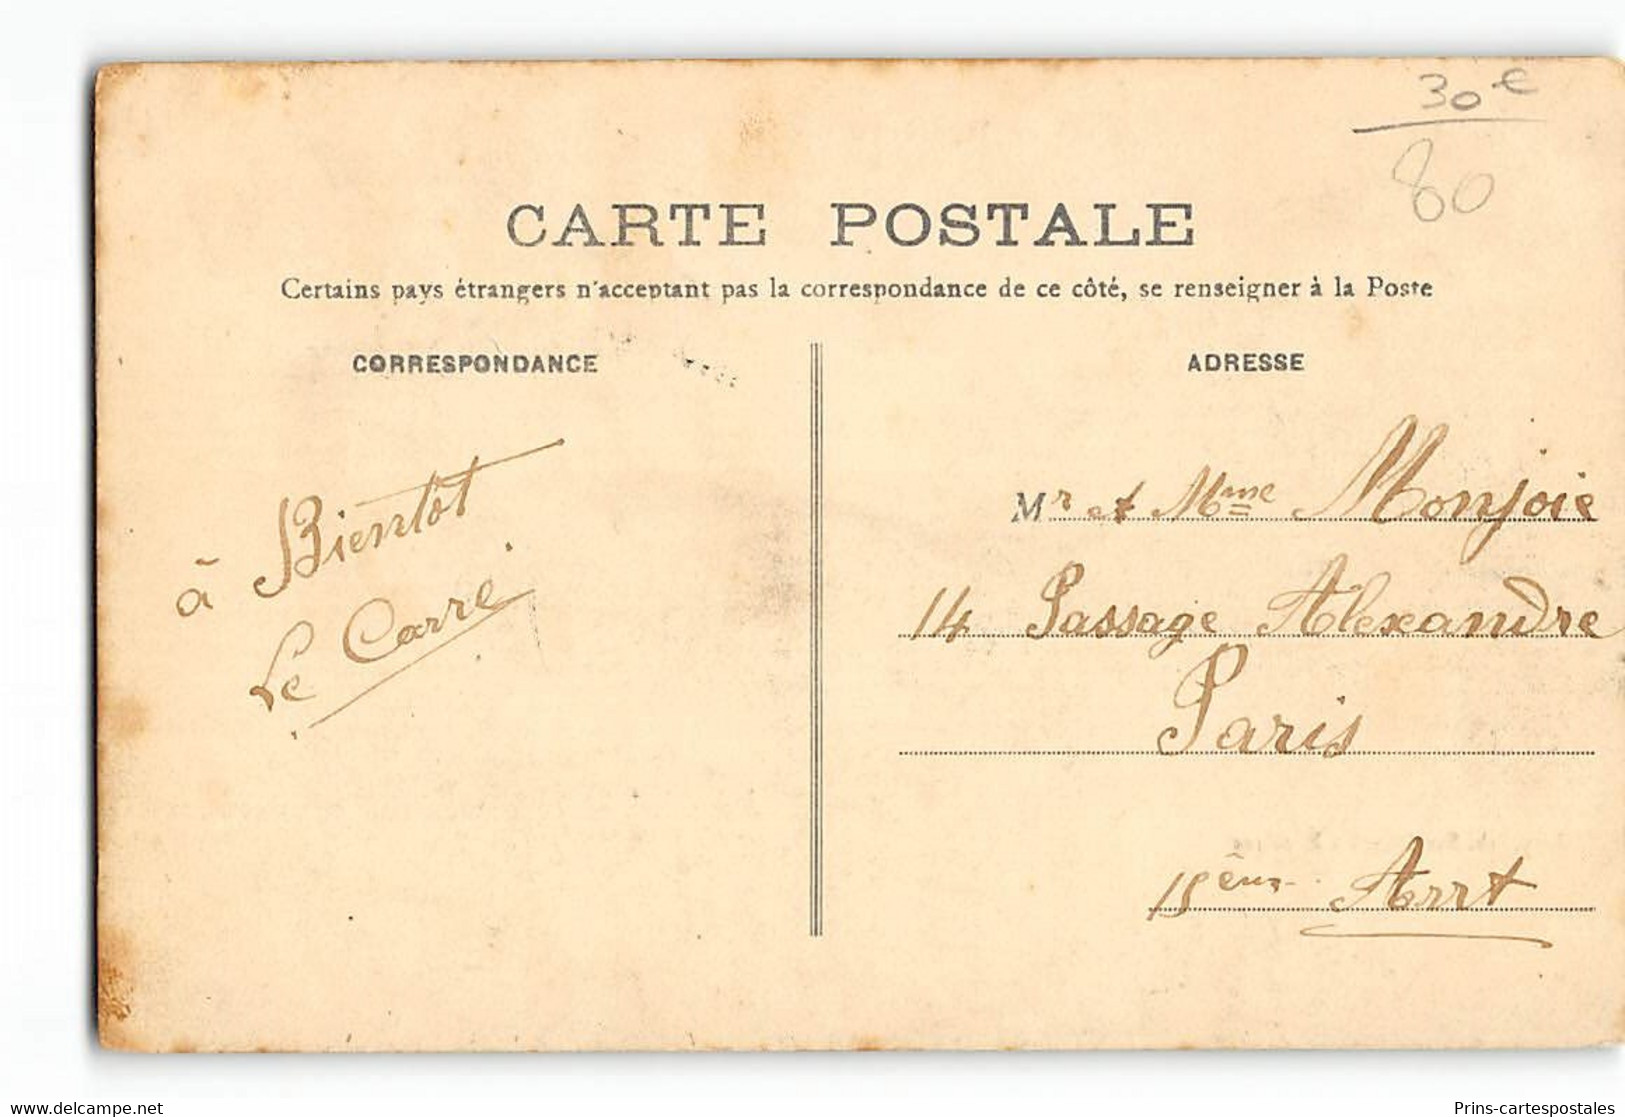 30 €
80
CARTE POSTALE
Certains pays étrangers n'acceptant pas la correspondance de ce côté, se renseigner à la Poste
CORRESPONDANCE
à Bientôt
Le Carre
ADRESSE
Mr et Mme Monjoie
14 Passage Alexandre
Paris
15ème Arrt
www.delcampe.net
Prins-cartespostales